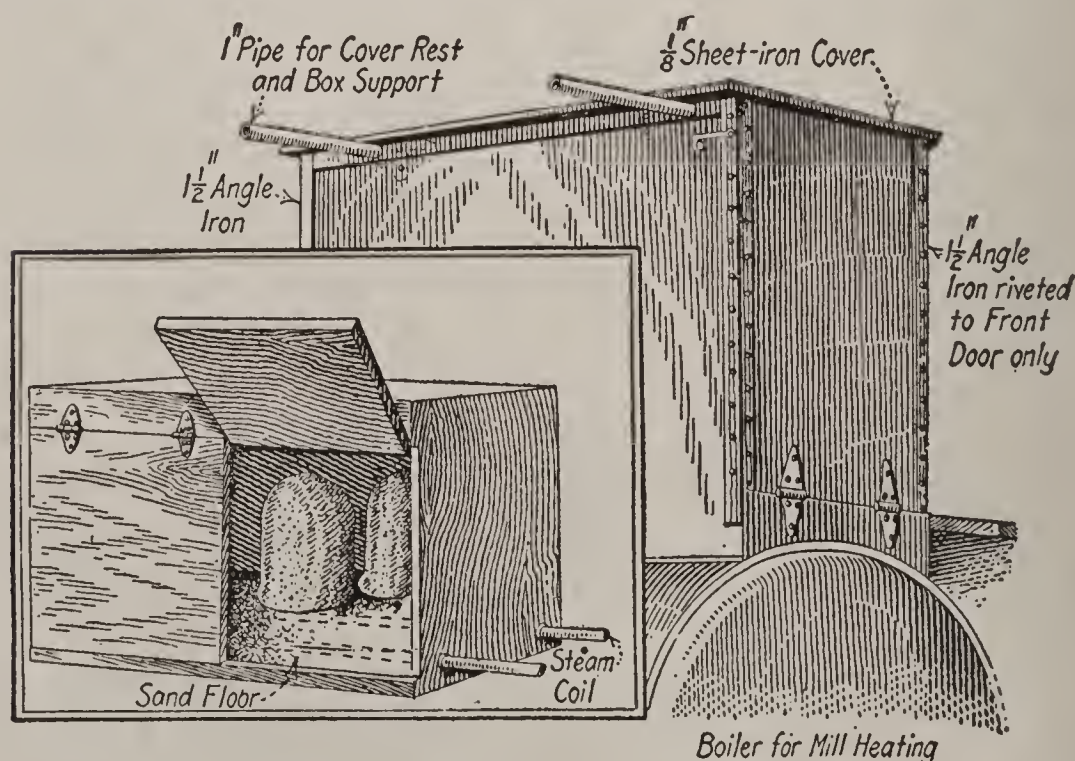 1" Pipe for Cover Rest
and Box Support
1/8" Sheet-iron Cover
1 1/2" Angle
Iron
1 1/2" Angle
Iron riveted
to Front
Door only
Sand Floor
Steam
Coil
Boiler for Mill Heating